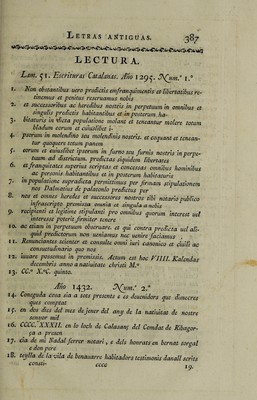 LETRAS ANTIGUAS. 387
LECTURA.
Lam. 51. Escrituras Catalanas. Año 1295. Num.º 1.º
1. Non obstantibus uero predictis enfranquimentis et libertatibus re-
tinemus et penitus reseruamus nobis
2. et successoribus ac heredibus nostris in perpetuum in omnibus et
singulis predictis habitatoribus et in posterum ha-
3. bituturis in dicta populatione uolant et teneantur molere totum
bladum eorum et cuiuslibet i-
4. psorum in molendino seu molendinis nostris. et coquant et tenean-
tur quoquere totum panem
5. eorum et cuiuslibet ipsorum in furno seu furnis nostris in perpe-
tuum ad districtum. predictas siquidem libertates
6. et franquitates superius scriptas et concessas omnibus hominibus
ac personis habitantibus et in posterum habituturis
7. in populatione supradicta permittimus per firmam stipulationem
nos Dalmatius de palatiolo predictus per
8. nos et omnes heredes et successores nostros tibi notario publico
infrascripto promissa omnia et singula a nobis
9. recipienti et legitime stipulanti pro omnibus quorum interest uel
interesse poterit firmiter tenere
10. ac etiam in perpetuum obseruare. et qui contra predicta uel ali-
quid predictorum non ueniamus nec uenire faciamus
11. Renunciantes scienter et consulte omni iuri canonico et ciuili ac
consuetudinario quo nos
12. iuuare possemus in premissis. Actum est hoc VIIII. Kalendas
decembris anno a natiuitate christi M.º
13. CC.º X.ºC. quinto.
Año 1432. Num.º 2.º
14. Coneguda cosa sia a tots presents e es deuenidors que dimecres
ques comptat
15. en dos dies del mes de jener del any de la natiuitat de nostre
senyor mil
16. CCCC. XXXII. en lo loch de Calasanç del Comdat de Ribagor-
ça a presen
17. cia de mi Nadal ferrer notari, e dels honrats en bernat torgal
e don pere
18. teylla de la vila de benauarre habitadors testimonis dauall scrits
consti-
cccc 19.